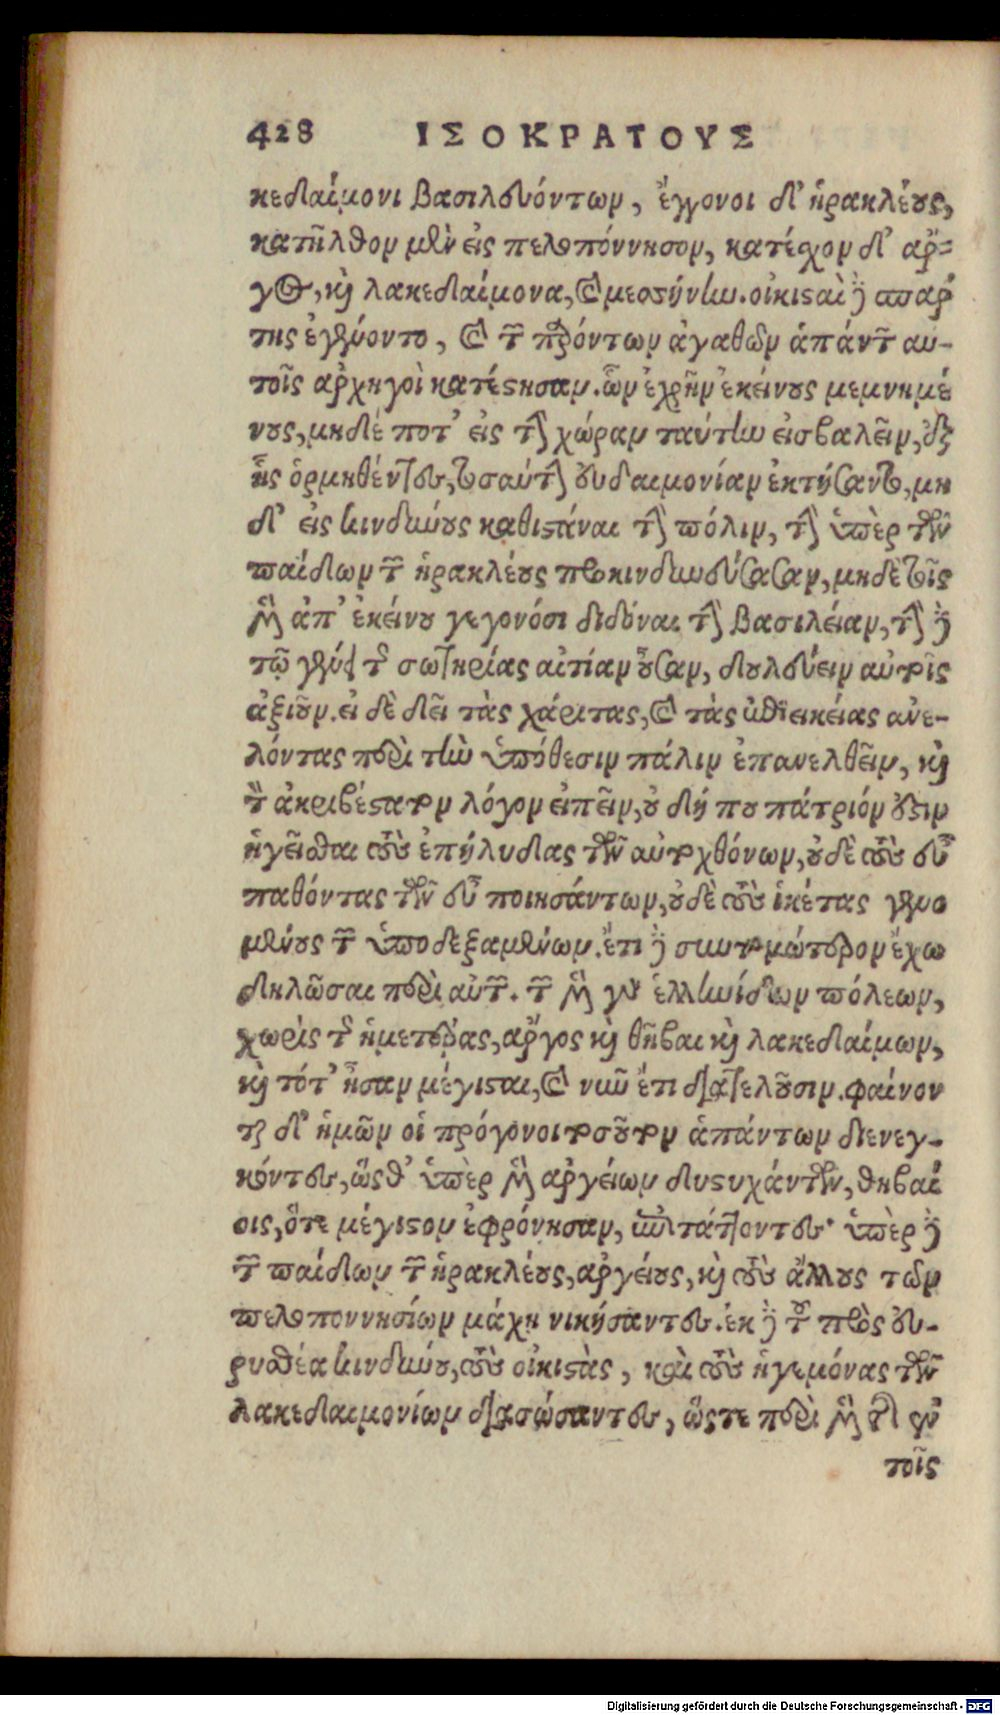 428 ΙΣΟΚΡΑΤΟΥΣ
κεδαίμονι βασιλευόντων, ἔγγονοι δ' ἡρακλέους,
κατῆλθον μὲν εἰς πελοπόννησον, κατέσχον δ' ἄρ-
γος, καὶ λακεδαίμονα, καὶ μεσσήνην. οἰκισταὶ δὲ σπάρ
της ἐγένοντο, καὶ τῶν παρόντων ἀγαθῶν ἁπάντων αὐ-
τοῖς ἀρχηγοὶ κατέστησαν. ὧν ἐχρῆν ἐκείνους μεμνημέ
νους, μηδέ ποτ' εἰς τὴν χώραν ταύτην εἰσβαλεῖν, ἐξ
ἧς ὁρμηθέντες, τοσαύτην εὐδαιμονίαν ἐκτήσαντο, μη
δ' εἰς κινδύνους καθιστάναι τὴν πόλιν, τὴν ὑπὲρ τῶν
παίδων τῶν ἡρακλέους προκινδυνεύσασαν, μηδὲ τοῖς
μὲν ἀπ' ἐκείνου γεγονόσι διδόναι τὴν βασιλείαν, τὴν δὲ
τῷ γένει τῆς σωτηρίας αἰτίαν οὖσαν, δουλεύειν αὐτοῖς
ἀξιοῦν. εἰ δὲ δεῖ τὰς χάριτας, καὶ τὰς ἐπιεικείας ἀνε-
λόντας περὶ τὴν ὑπόθεσιν πάλιν ἐπανελθεῖν, καὶ
τὸν ἀκριβέστατον λόγον εἰπεῖν, οὐ δή που πάτριόν ἐστιν
ἡγεῖσθαι τοὺς ἐπήλυδας τῶν αὐτοχθόνων, οὐδὲ τοὺς εὖ
παθόντας τῶν εὖ ποιησάντων, οὐδὲ τοὺς ἱκέτας γενο
μένους τῶν ὑποδεξαμένων. ἔτι δὲ συντομώτερον ἔχω
δηλῶσαι περὶ αὐτῶν. τῶν μὲν γὰρ ἑλληνίδων πόλεων,
χωρὶς τῆς ἡμετέρας, ἄργος καὶ θῆβαι καὶ λακεδαίμων,
καὶ τότ' ἦσαν μέγισται, καὶ νῦν ἔτι διατελοῦσιν. φαίνον
ται δ' ἡμῶν οἱ πρόγονοι τοσοῦτον ἁπάντων διενεγ-
κόντες, ὥσθ' ὑπὲρ μὲν ἀργείων δυστυχάντων, θηβαί
οις, ὅτε μέγιστον ἐφρόνησαν, ἐπιτάττοντες· ὑπὲρ δὲ
τῶν παίδων τῶν ἡρακλέους, ἀργείους, καὶ τοὺς ἄλλους τῶν
πελοποννησίων μάχῃ νικήσαντες. ἐκ δὲ τοῦ πρὸς εὐ-
ρυσθέα κινδύνου, τοὺς οἰκιστὰς, καὶ τοὺς ἡγεμόνας τῶν
λακεδαιμονίων διασώσαντες, ὥστε περὶ μὲν τῆς ἐν
τοῖς
Digitalisierung gefördert durch die Deutsche Forschungsgemeinschaft - DFG